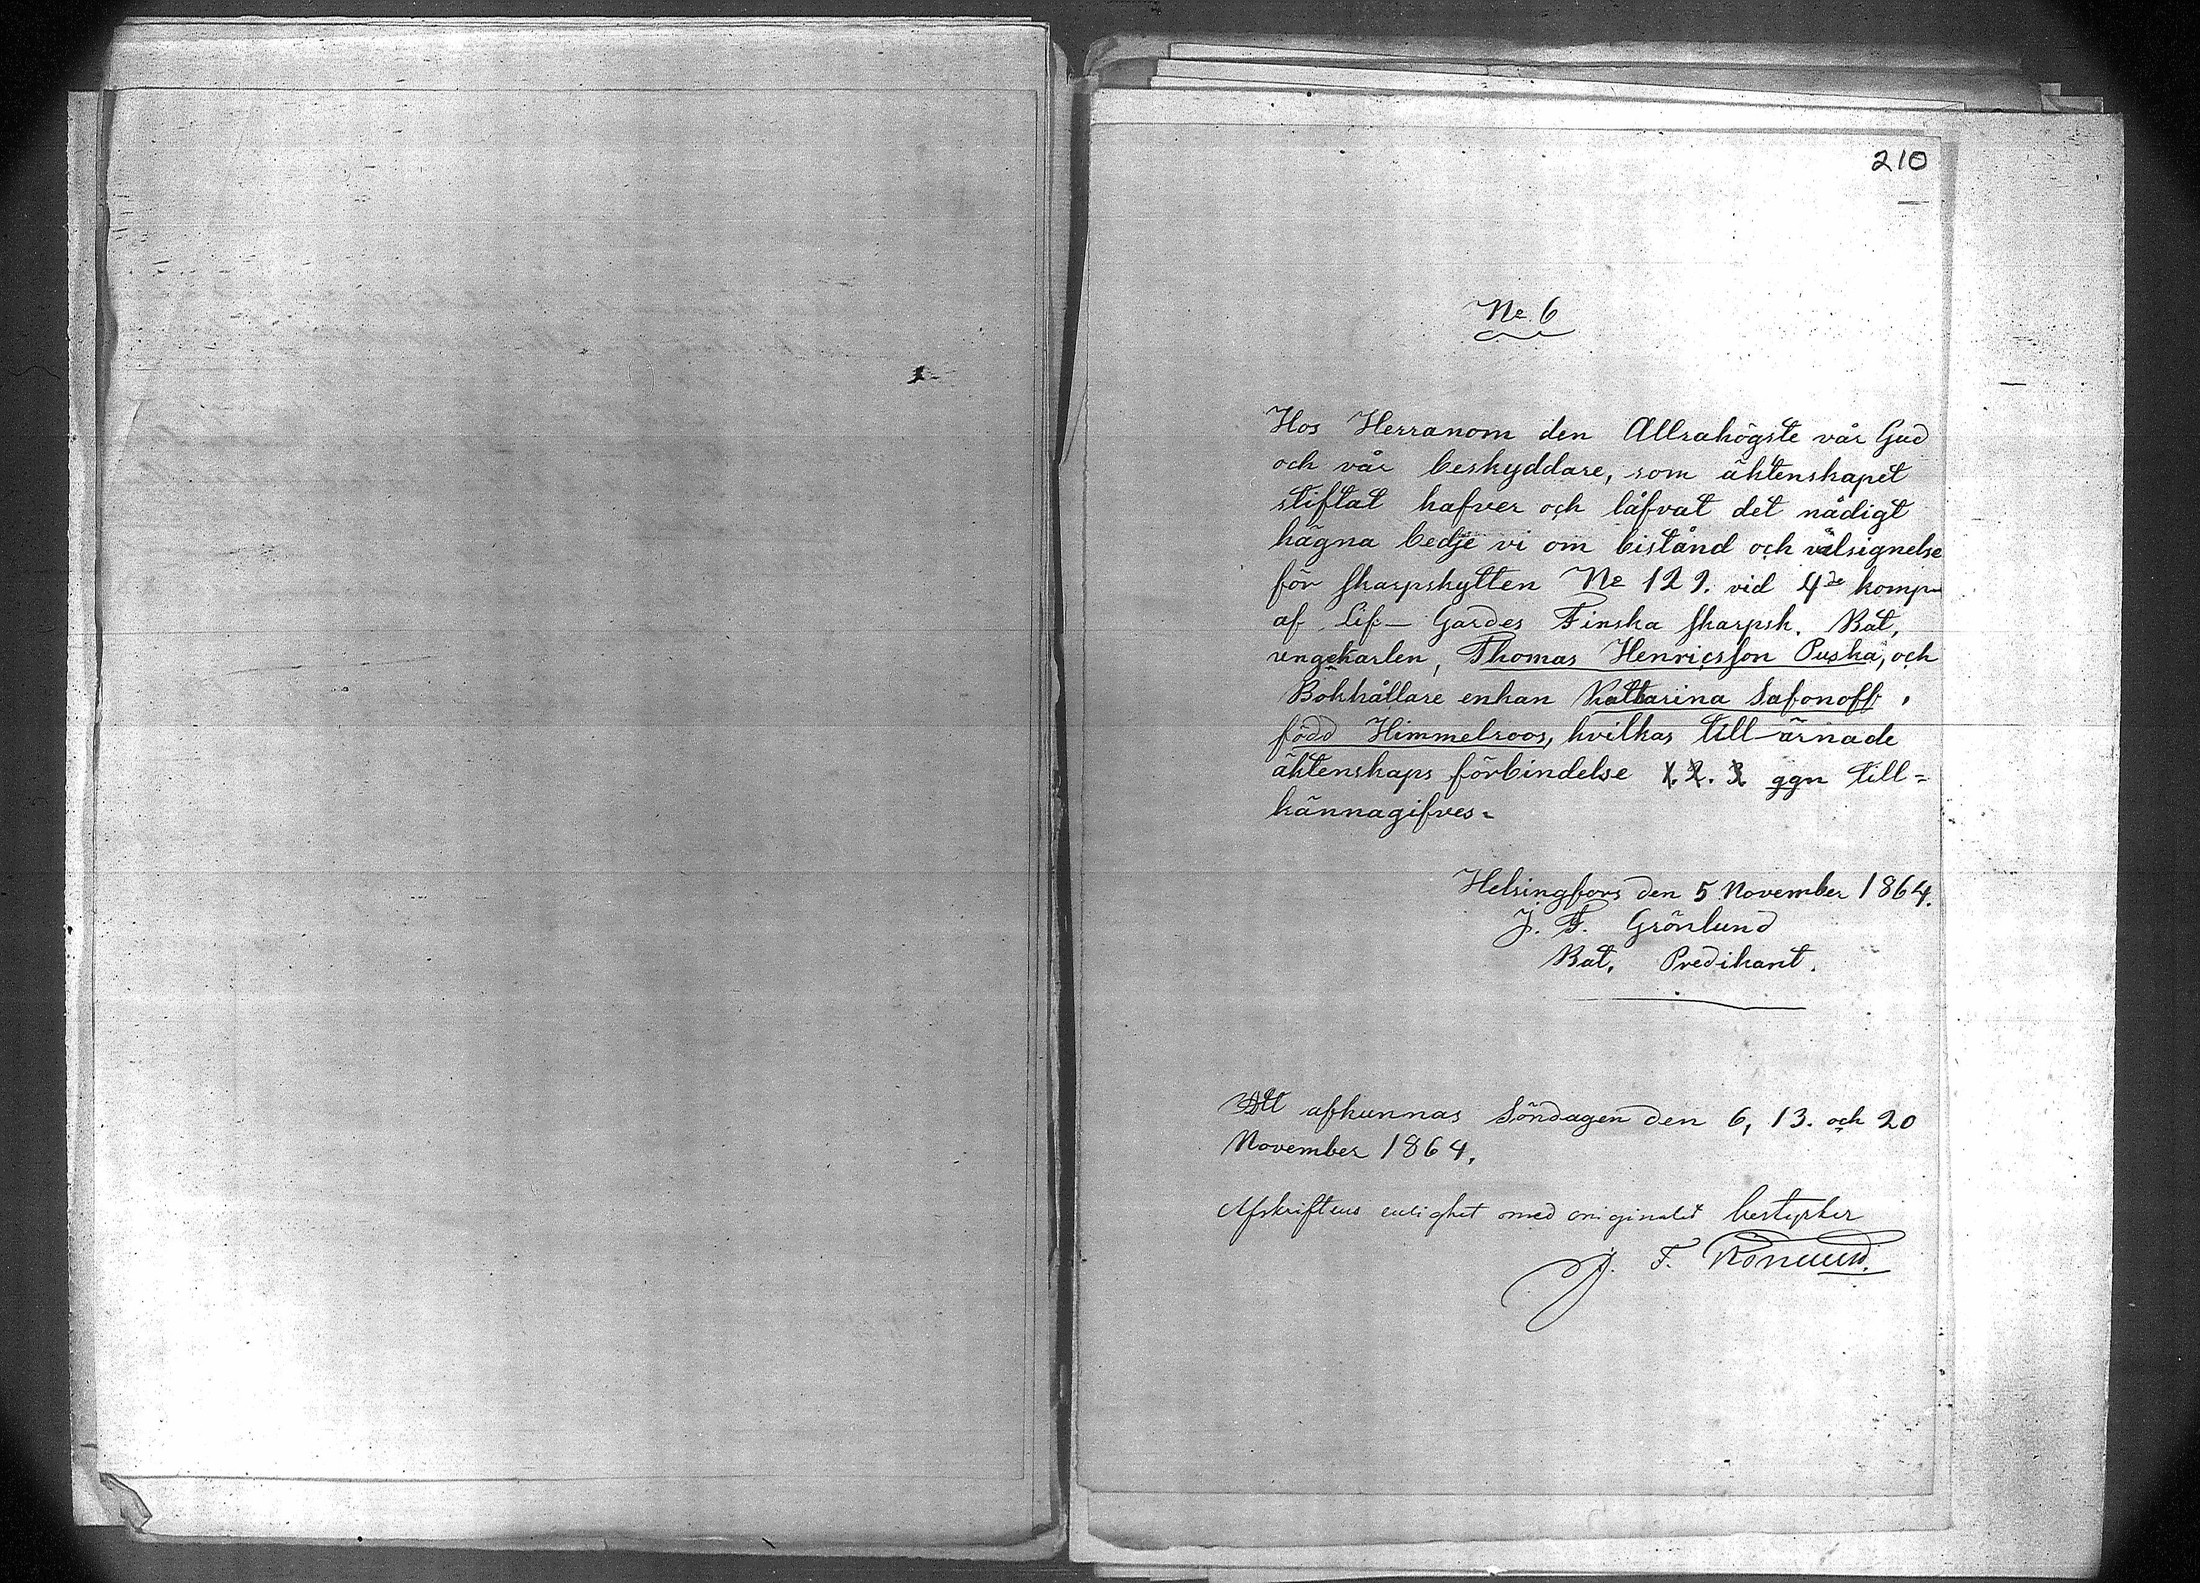 210
No 6
Hos Herranom den Allrahögste vår Gud
och vår beskyddare, som äktenskapet
stiftat hafver och låfvat det nådigt
hägna bedje vi om bistånd och välsignelse
för skarpskytten No 129. vid 4de komp
af Lif- Gardes Finska skarpsk. Bat,
ungekarlen, Thomas Henricsson Puska, och
Bokhållare enkan Katharina Safonoff,
född Himmelroos, hvilkas till ärnade
äktenskaps förbindelse 1. 2. 3 ggn till=
kännagifves.
Helsingfors den 5 November 1864.
J. F. Grönlund
Bat. Predikant.
Att afkunnas Söndagen den 6, 13. och 20
November 1864.
Afskriftens enlighet med originalet bestyrker
J. F.